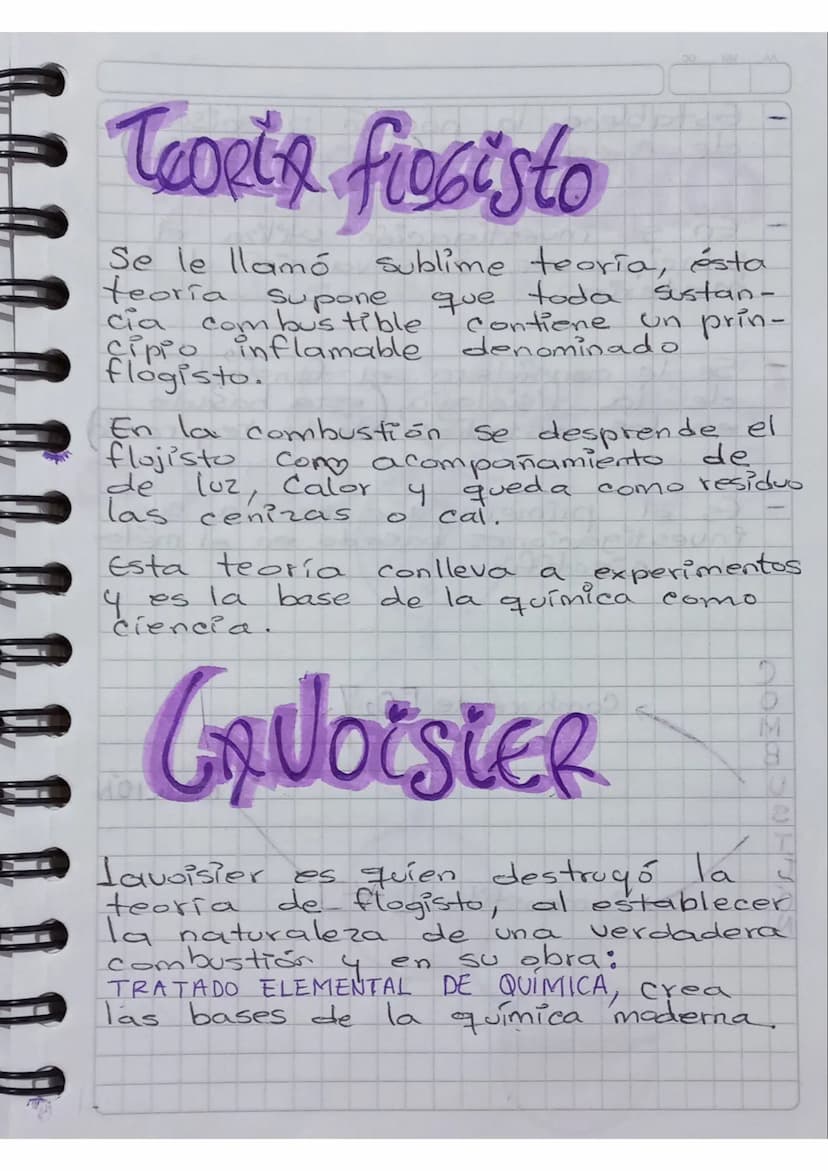 Teoría flogisto
Se le llamó sublime teoría, ésta
teoría supone que toda sustan-
cia combustible contiene un prin-
cipio inflamable denominado
flogisto.
En la combustión se desprende el
flojisto como acompañamiento de
de luz, calor y queda como residuo
las cenizas o cal.
Esta teoría conlleva a experimentos
y es la base de la química como
ciencia.
LAVOISIER
Lavoisier es quien destruyó la
teoría de flogisto, al establecer
la naturaleza de una verdadera
combustión y en su obra:
TRATADO ELEMENTAL DE QUÍMICA, crea
las bases de la química moderna.